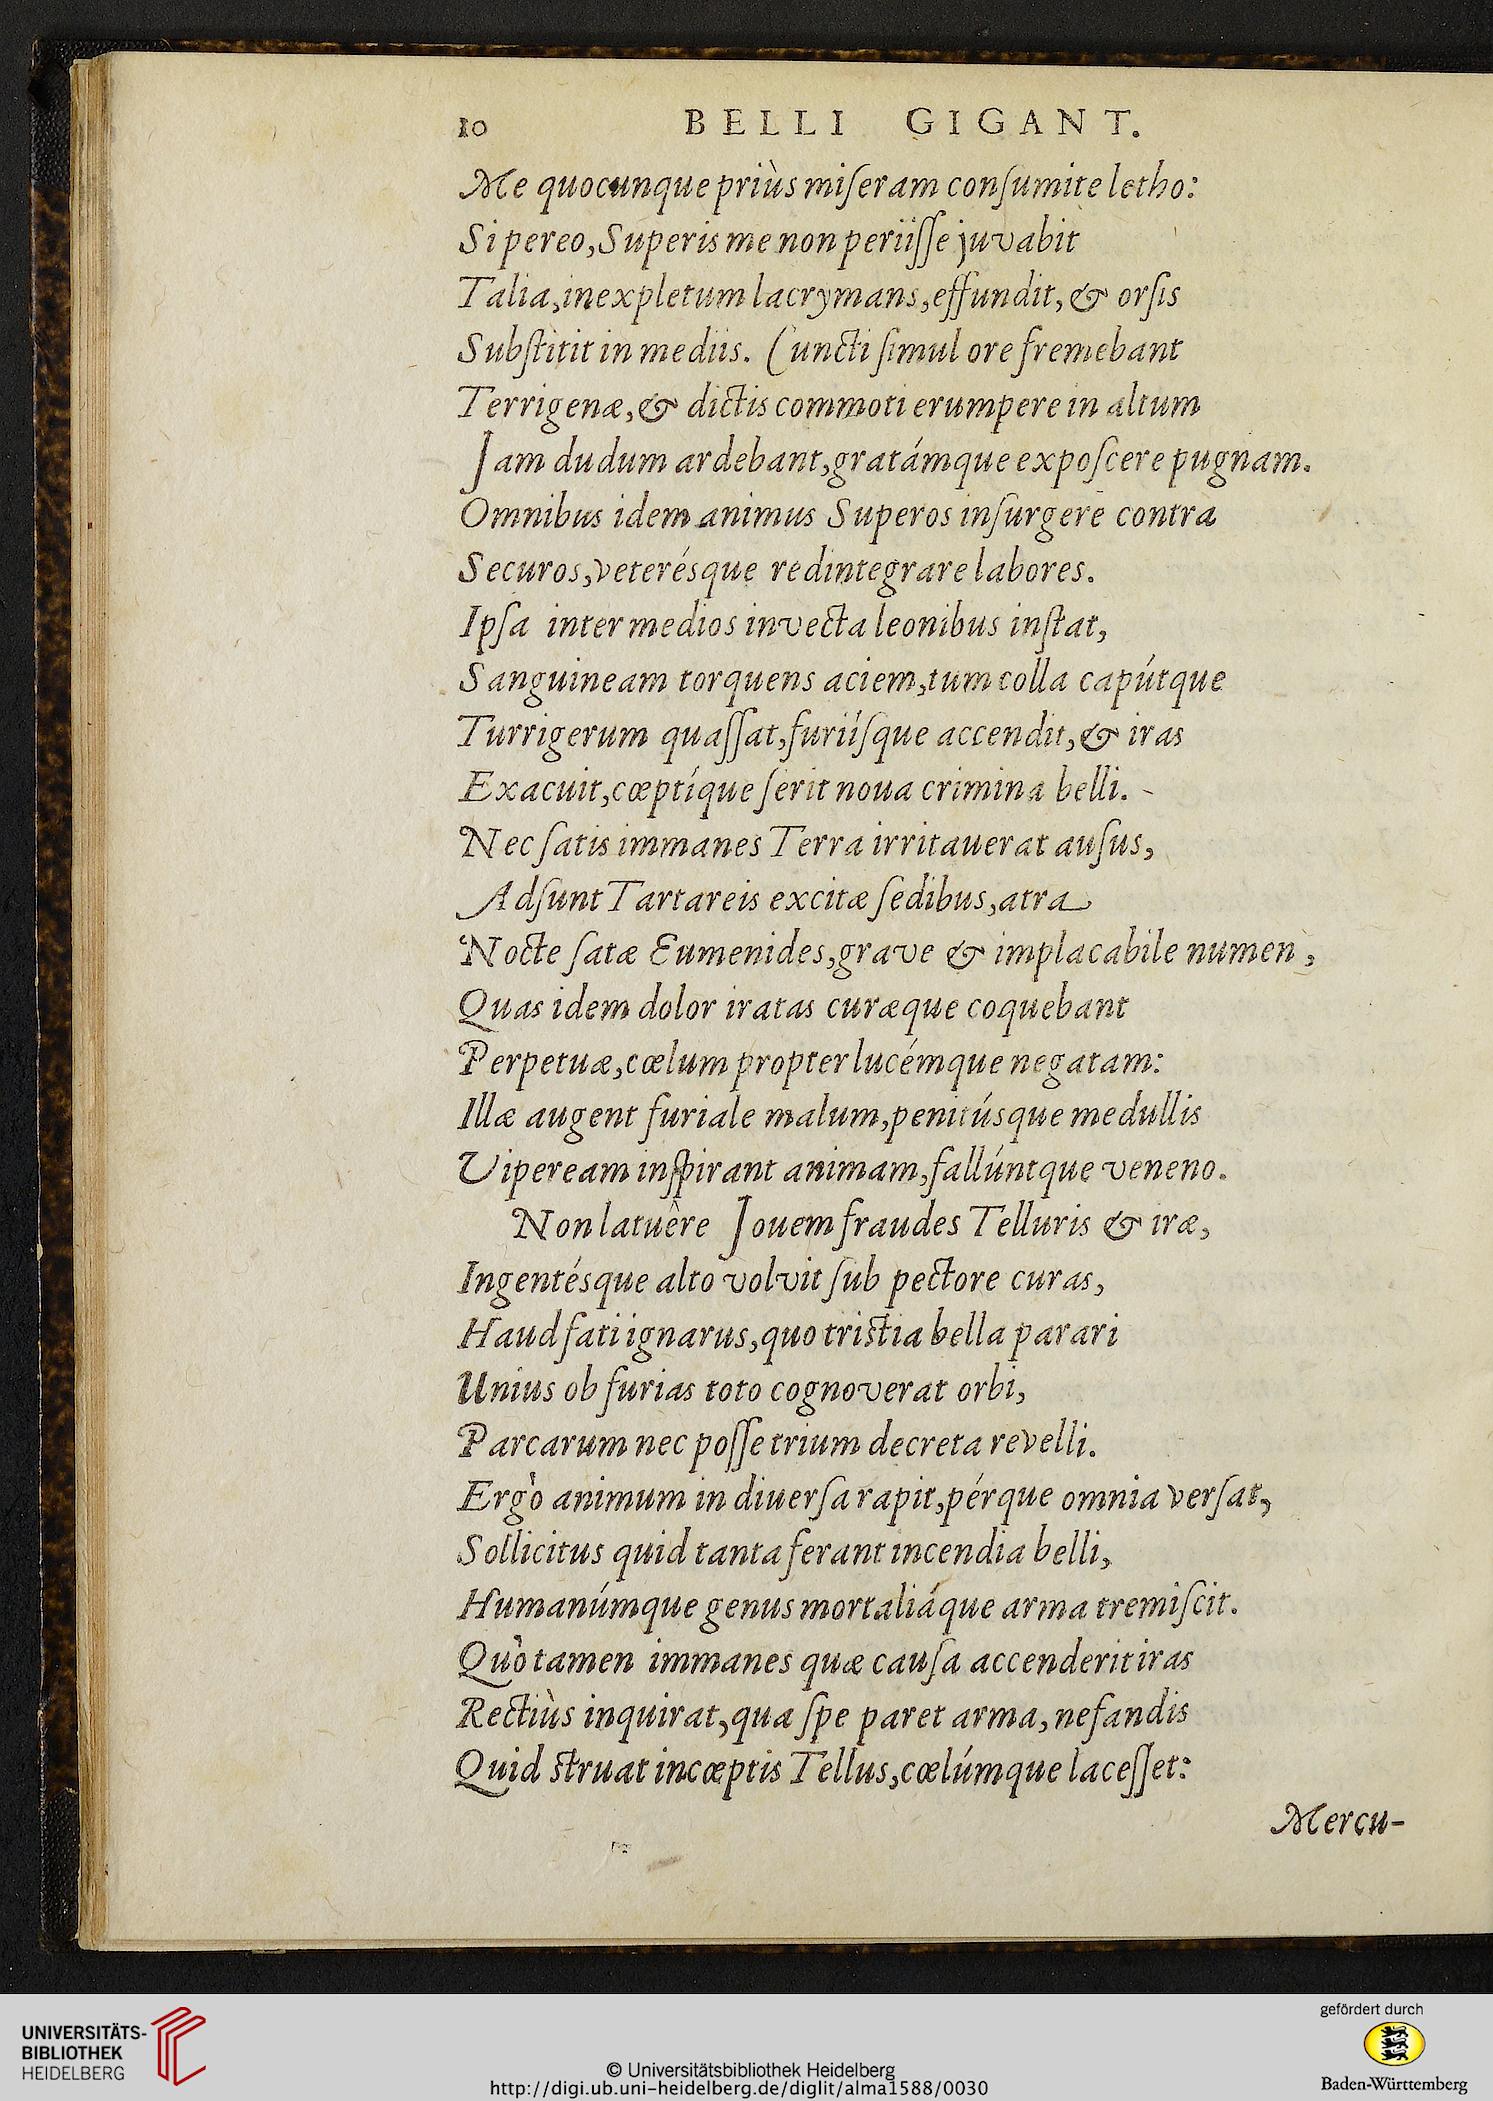 10 BELLI GIGANT.
Me quocunque priùs miſeram conſumite letho:
Si pereo, Superis me non periiſſe juvabit
Talia, inexpletum lacrymans, effundit, & orſis
Subſtitit in mediis. Cuncti ſimul ore fremebant
Terrigenæ, & dictis commoti erumpere in altum
Jam dudum ardebant, gratámque expoſcere pugnam.
Omnibus idem animus Superos inſurgere contra
Securos, veterésque redintegrare labores.
Ipſa inter medios invecta leonibus inſtat,
Sanguineam torquens aciem, tum colla capútque
Turrigerum quaſſat, furiíſque accendit, & iras
Exacuit, cœptíque ſerit noua crimina belli.
Nec ſatis immanes Terra irritauerat auſus,
Adſunt Tartareis excitæ ſedibus, atra
Nocte ſatæ Eumenides, grave & implacabile numen,
Quas idem dolor iratas curæque coquebant
Perpetuæ, cœlum propter lucémque negatam:
Illæ augent furiale malum, penitúsque medullis
Vipeream inſpirant animam, fallúntque veneno.
Non latuêre Jouem fraudes Telluris & iræ,
Ingentésque alto volvit ſub pectore curas,
Haud fati ignarus, quo tristia bella parari
Unius ob furias toto cognoverat orbi,
Parcarum nec poſſe trium decreta revelli.
Ergò animum in diuerſa rapit, pérque omnia verſat,
Sollicitus quid tanta ferant incendia belli,
Humanúmque genus mortaliáque arma tremiſcit.
Quò tamen immanes quæ cauſa accenderit iras
Rectiùs inquirat, qua ſpe paret arma, nefandis
Quid struat incœptis Tellus, cœlúmque laceſſet:
Mercu-
UNIVERSITÄTS-
BIBLIOTHEK
HEIDELBERG
© Universitätsbibliothek Heidelberg
http://digi.ub.uni-heidelberg.de/diglit/alma1588/0030
gefördert durch
Baden-Württemberg